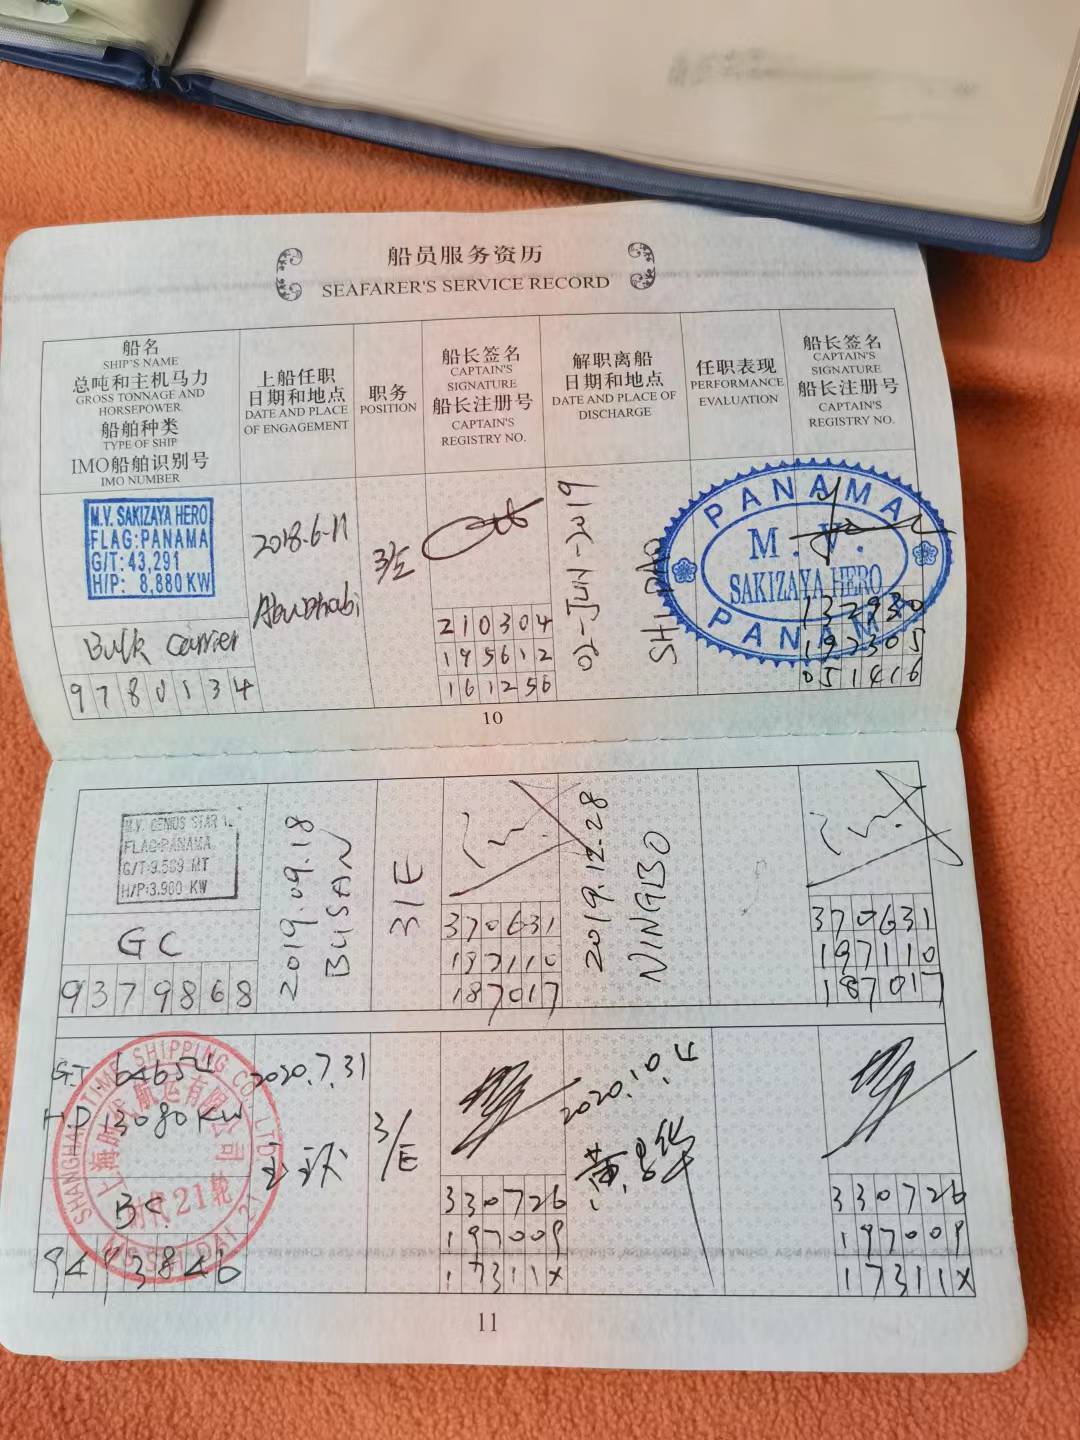 船员服务资历
SEAFARER'S SERVICE RECORD
船名
SHIP'S NAME
总吨和主机马力
GROSS TONNAGE AND
HORSEPOWER
船舶种类
TYPE OF SHIP
IMO船舶识别号
IMO NUMBER
上船任职
日期和地点
DATE AND PLACE
OF ENGAGEMENT
职务
POSITION
船长签名
CAPTAIN'S
SIGNATURE
船长注册号
CAPTAIN'S
REGISTRY NO.
解职离船
日期和地点
DATE AND PLACE OF
DISCHARGE
任职表现
PERFORMANCE
EVALUATION
船长签名
CAPTAIN'S
SIGNATURE
船长注册号
CAPTAIN'S
REGISTRY NO.
M.V. SAKIZAYA HERO
FLAG:PANAMA
G/T: 43,291
H/P: 8,880 KW
Bulk carrier
9780134
2018-6-11
Abu Dhabi
210304
195612
161256
02-JUN-2019
SHI DAO
PANAMA
M.V.
SAKIZAYA HERO
PANAMA
132930
197305
051416
10
M.V. GENIUS STAR
FLAG:PANAMA
G/T:9.589 MT
H/P:3.900 KW
GC
9379868
2019.09.18
BUSAN
3/E
370631
197110
187017
2019.12.28
NINGBO
370631
197110
187017
G.T 64654
H.P 13080KW
BC
SHANGHAI TIME SHIPPING CO., LTD
上海时代航运有限公司
时代21轮
M/V SHI DAI 21
2020.7.31
3/E
330726
197009
17311X
2020.10.4
黄骅
330726
197009
17311X
11